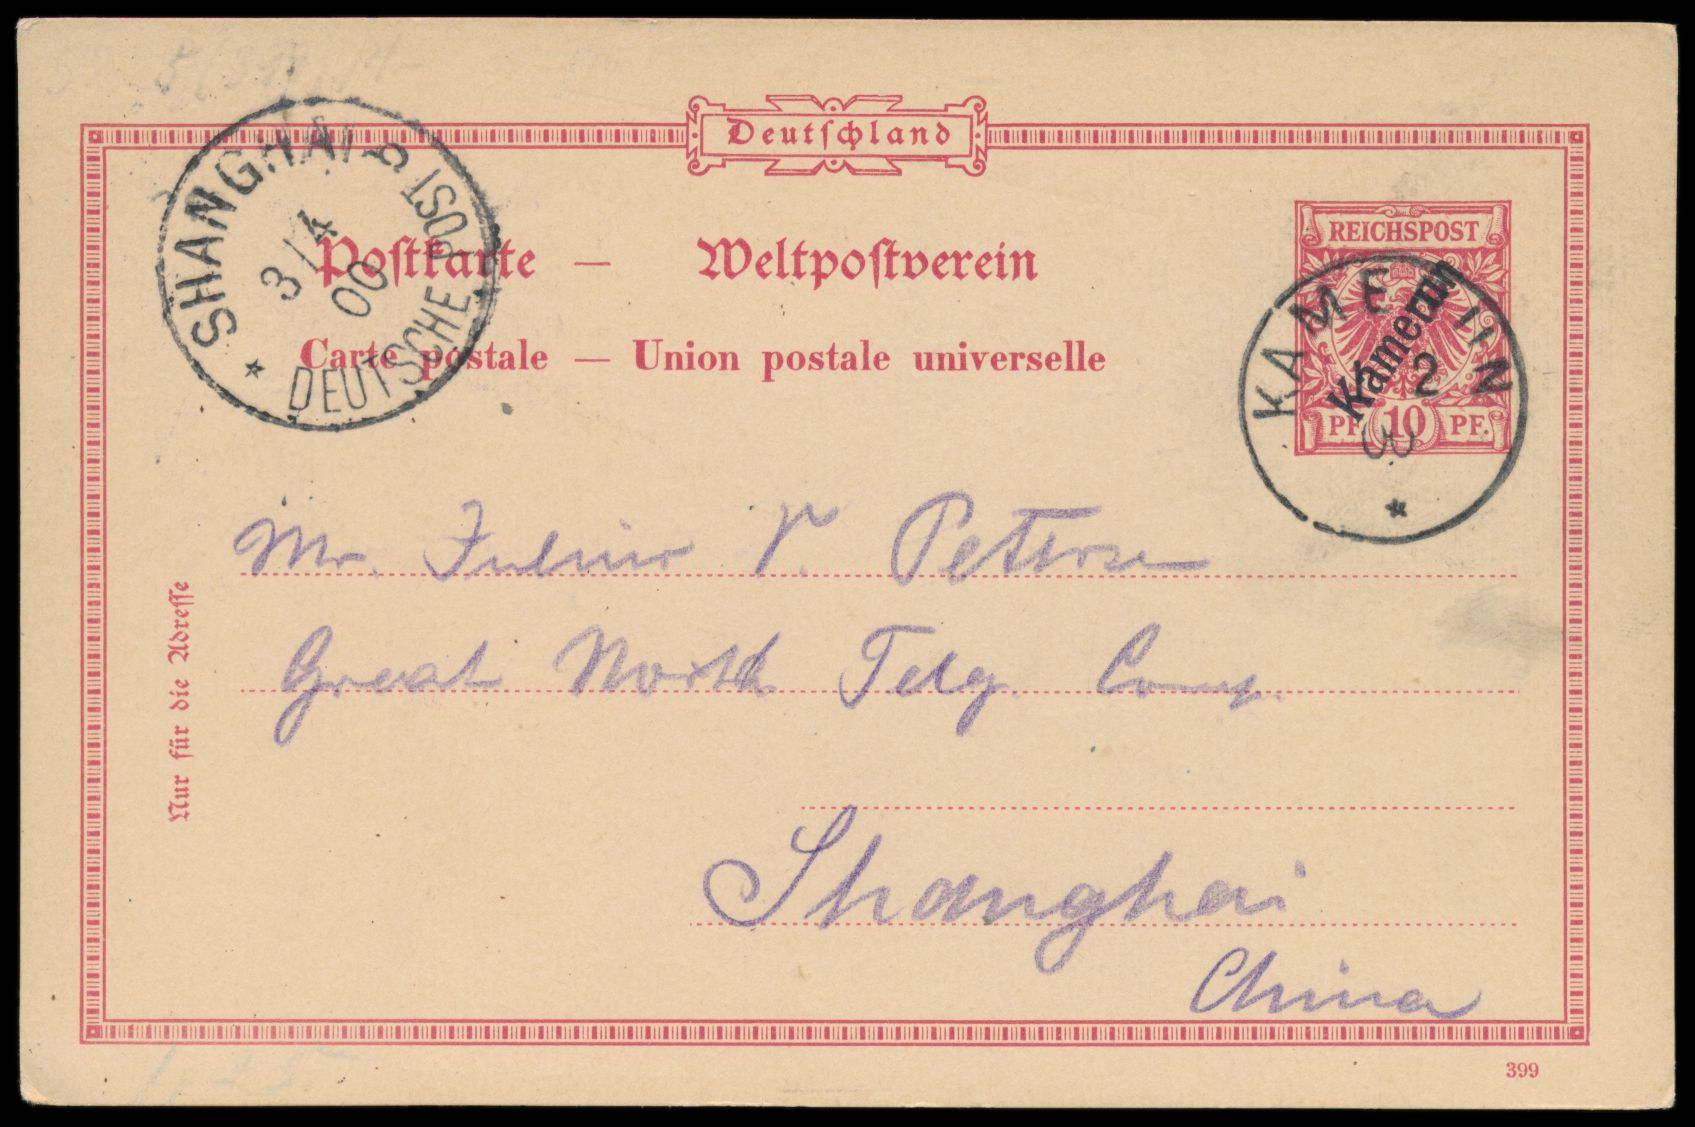 Deutschland
REICHSPOST
Kamerun
PF 10 PF.
KAMERUN
2
00
SHANGHAI
DEUTSCHE POST
3/4
00
Postkarte — Weltpostverein
Carte postale — Union postale universelle
Nur für die Adresse
Mr. Julius V. Petersen
Great North Telg. Comp.
Shanghai
China
399